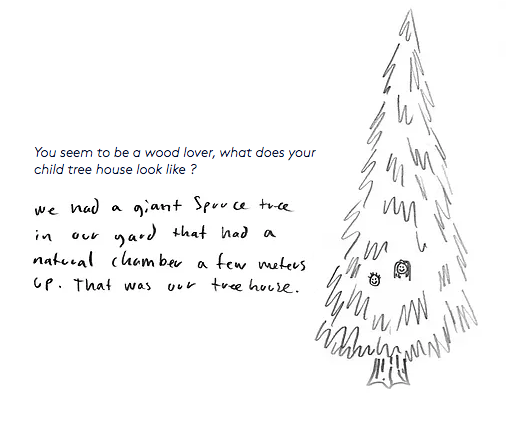 You seem to be a wood lover, what does your
child tree house look like ?
we had a giant Spruce tree
in our yard that had a
natural chamber a few meters
up. That was our treehouse.